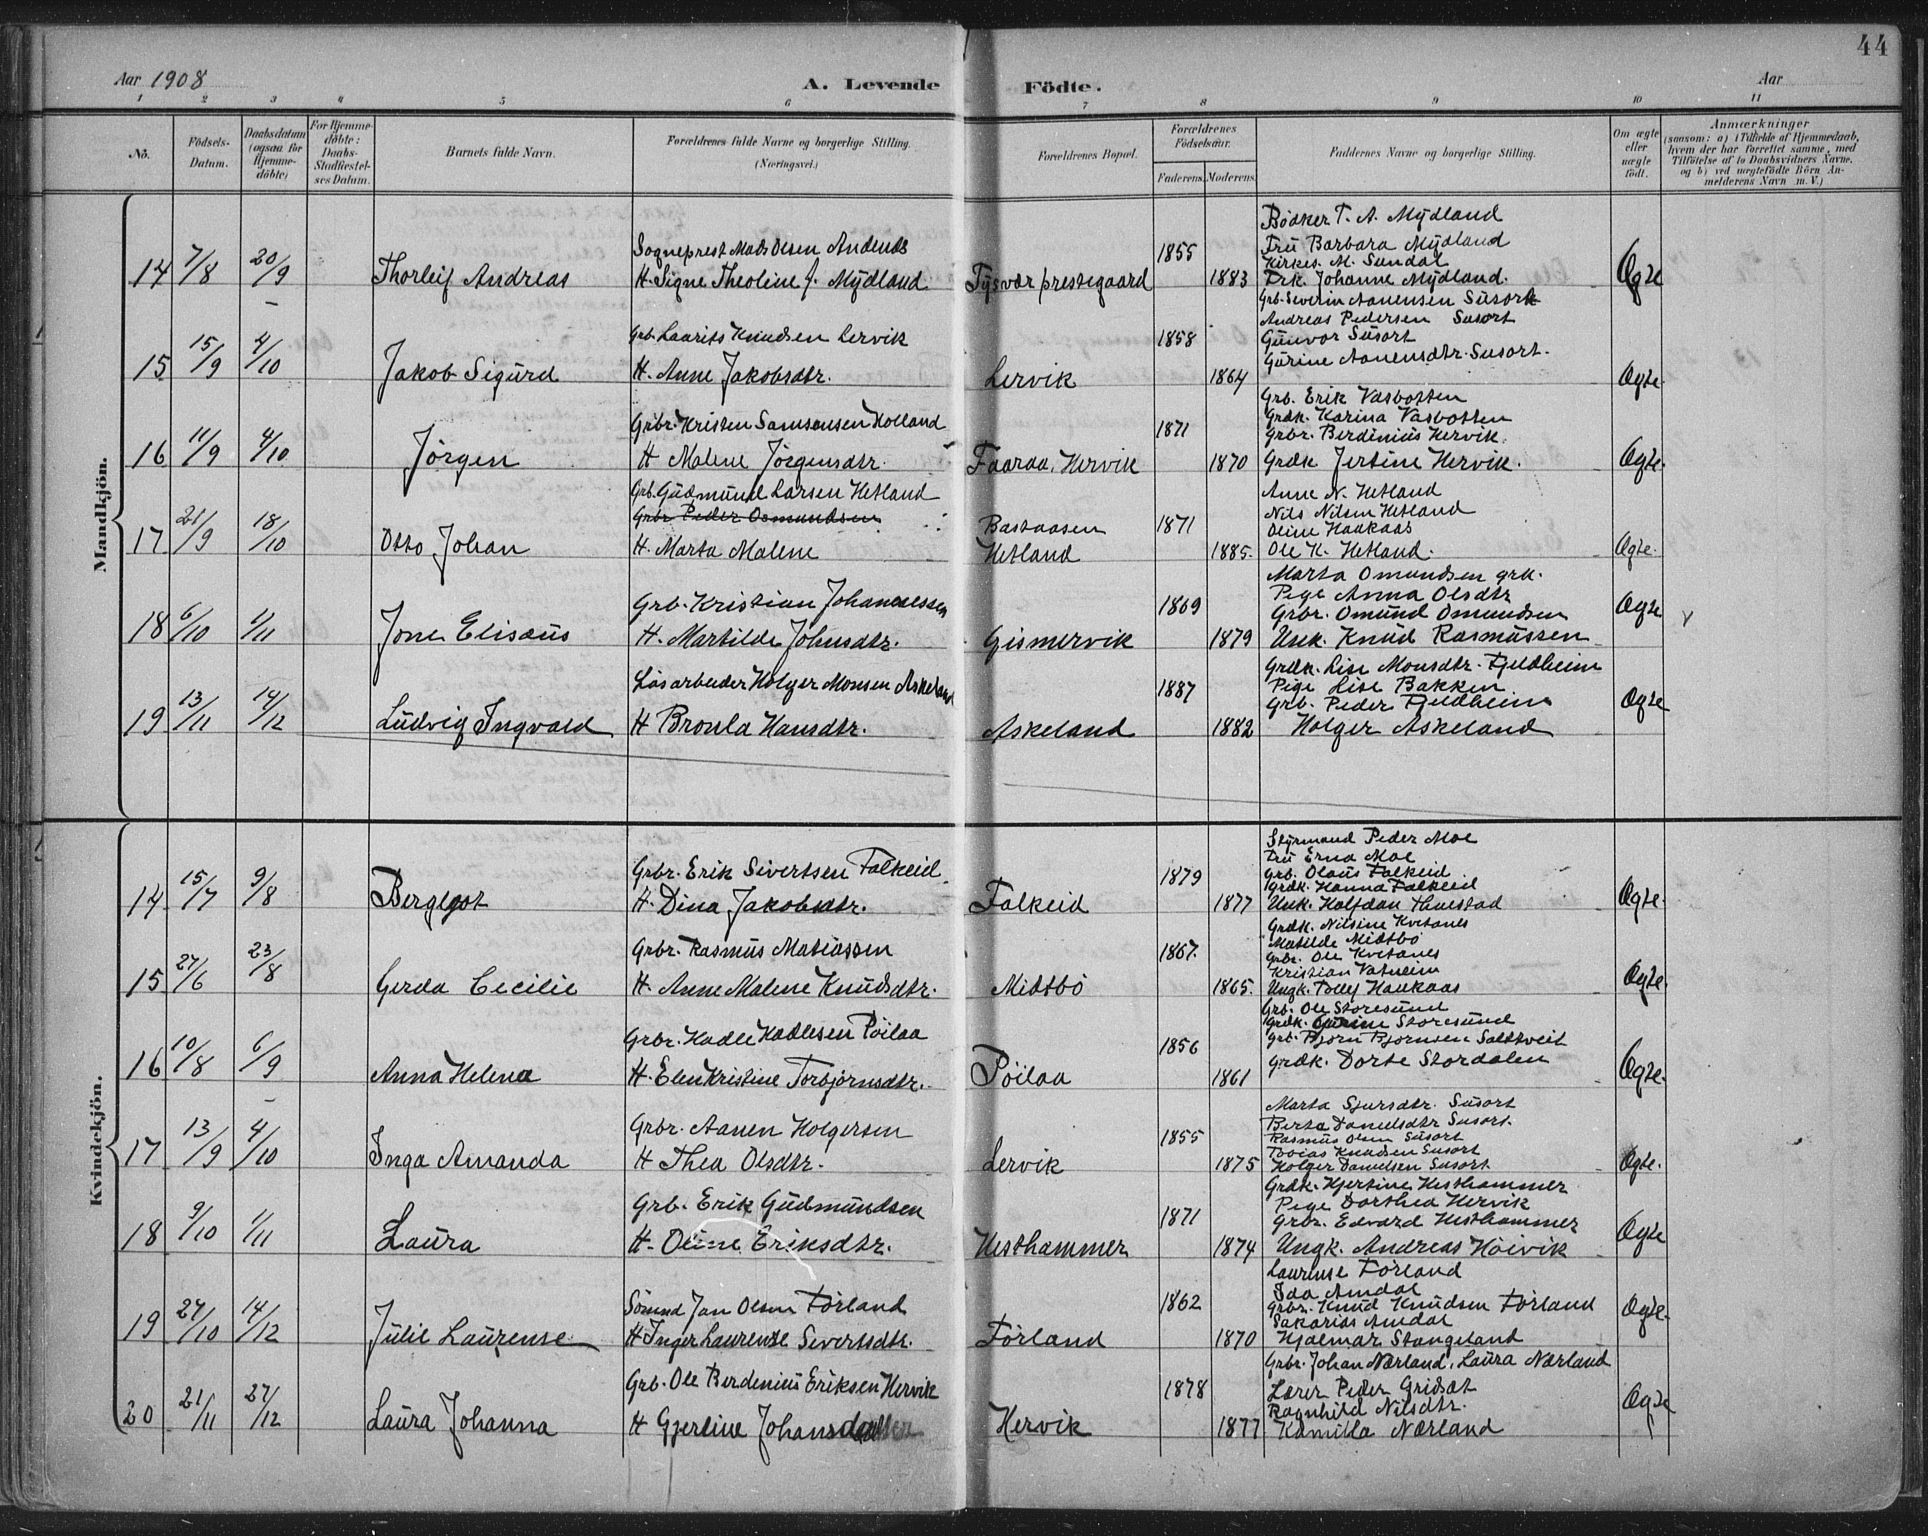 44
Aar 1908 A. Levende Födte. Aar
1 2 3 4 5 6 7 8 9 10 11
No. Födsels-Datum. Daabsdatum (ogsaa for Hjemme-döbte) For Hjemme-döbte: Daabs-Stadfestel-ses Datum. Barnets fulde Navn. Forældrenes fulde Navne og borgerlige Stilling. (Næringsvei.) Forældrenes Bopæl. Forældrenes Födselsaar. Faderens Moderens Faddernes Navne og borgerlige Stilling. Om ægte eller uægte födt. Anmærkninger (saasom: a) i Tilfælde af Hjemmedaab, hvem der har forrettet samme, med Tilföielse af to Daabsvidners Navne. og b) ved uægtefödte Börn An-melderens Navn m. V.)
Mandkjön.
Bödker T. A. Mydland
Sogneprest Mads Olsen Andenæs 1855 Fru Barbara Mydland
Kirkes. M. Sundal
14 7/8 20/9 Thorleif Andreas H. Signe Theoline f. Mydland Tysvær prestegaard 1883 Frk. Johanne Mydland. Ægte
Grb. Severin Aanensen Susort
Andreas Pedersen Susort
Grb. Laurits Knudsen Lervik 1858 Gunvor Susort
Gurine Aanensdtr. Susort.
15 15/9 4/10 Jakob Sigurd H. Anne Jakobsdtr. Lervik 1864 Ægte
Grb. Erik Vasbotten
Grbr. Kristen Samsonsen Holland 1871 Grdk. Karina Vasbotten
Grbr. Berdinius Hervik.
16 11/9 4/10 Jörgen H Malene Jörgensdtr. Faaraa, Hervik 1870 Grdk Jertine Hervik. Ægte.
Grb. Gudmund Larsen Hetland Anne N. Hetland
Grbr Peder Osmundsen Bastaasen 1871 Nils Nilsen Hetland
Oline Haakaas
17 21/9 18/10 Otto Johan H. Marta Malene Hetland 1885. Ole K. Hetland. Ægte.
Marta Omundsen grk.
Grb. Kristian Johannessen 1869 Pige Anna Olsdtr
Grbr. Omund Omundsen
18 6/10 1/11 Jone Elisæus H. Martilde Johnsdtr. Gismervik 1879 Unk. Knud Rasmussen Ægte
Grdk. Lise Monsdtr. Fjeldheim
Lösarbeider Holger Monsen Askeland 1887 Pige Lise Bakken
Grb. Peder Fjeldheim
19 13/11 14/12 Ludvig Ingvald H Bronla Hansdtr. Askeland 1882 Holger Askeland Ægte
Kvindekjön.
Styrmand Peder Moe
Fru Erna Moe
Grbr. Erik Sivertsen Falkeid 1879 Grb. Olaus Falkeid
Grdk. Hanna Falkeid
14 15/7 9/8 Berglgot H. Dina Jakobsdtr. Falkeid 1877 Unk. Halfdan Thuestad Ægte.
Grdk. Nilsine Kvitanes
Grbr. Rasmus Matiassen 1867. Matilde Midtbö
Grbr. Ole Kvitanes
Kristian Vatneim
15 27/6 23/8 Gerda Cecilie H. Anne Malene Knudsdtr. Midtbö 1865. Ungk. Tolleif Haukaas Ægte.
Grb. Ole Storesund
Grbr. Hadle Hadlesen Pöilaa 1856 Grdk. Gurine Storesund
Grb. Bjorn Bjornsen Saltveit
16 10/8 6/9 Anna Helena H. Elen Kristine Torbjörnsdtr. Pöilaa 1861 Grdk. Dorte Stordalen Ægte.
Marta Sjursdtr. Susort
Grbr. Aanen Holgersen 1855 Berta Danielsdtr Susort.
Rasmus Olsen Susort
Tobias Knudsen Susort
17 13/9 4/10 Inga Amanda H Thea Olsdtr. Lervik 1875 Holger Danielsen Susort Ægte.
Grdk. Hjertine Hesthammer
Grb. Erik Gudmundsen 1871 Pige Dorthea Hervik
Grbr. Edvard Hesthammer
18 9/10 1/11 Laura H. Oline Eriksdtr. Hesthammer 1874 Ungk. Andreas Höivik Ægte
Laurense Förland
Sömnd Jan Olsen Förland 1862 Ida Amdal
Grbr. Knud Knudsen Förland
Sakarias Amdal
19 27/10 14/12 Julie Laurense H Inger Laurense Sivertsdtr. Förland 1870 Hjalmar Stangeland Ægte.
Grbr. Johan Nærland, Laura Nærland
Grb. Ole Berdenius Eriksen Hervik 1878 Lærer Peder Gridset
Ragnhild Nilsdtr.
20 21/11 27/12 Laura Johanna H Gjertine Johansdatter Hervik 1877 Kamilla Nærland Ægte